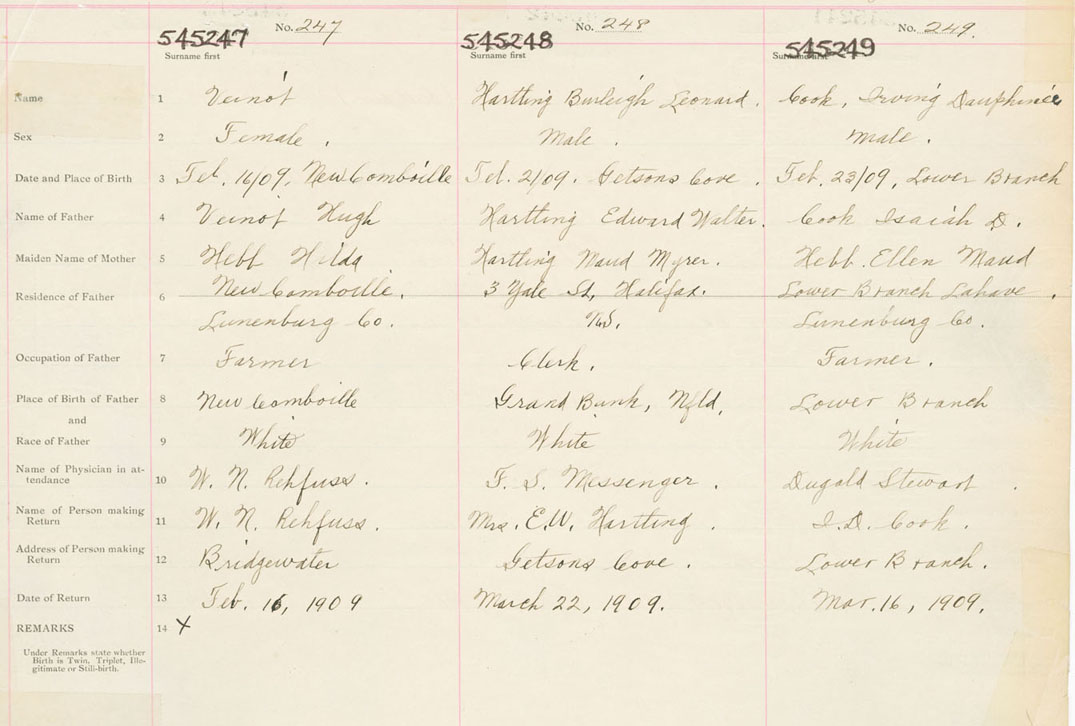 No. 247 No. 248 No. 249.
545247 545248 545249
Surname first Surname first Surname first
Name 1 Veinot Hartling Burleigh Leonard. Cook, Irving Dauphinée
Sex 2 Female. Male. Male.
Date and Place of Birth 3 Feb. 16/09. New Comboille Feb. 2/09. Getsons Cove. Feb. 23/09, Lower Branch
Name of Father 4 Veinot Hugh Hartling Edward Walter. Cook Isaiah D.
Maiden Name of Mother 5 Hebb Hilda Hartling Maud Myrer. Hebb. Ellen Maud
Residence of Father 6 New Comboille. 3 Yale St, Halifax. Lower Branch Lahave.
Lunenburg Co. N.S. Lunenburg Co.
Occupation of Father 7 Farmer Clerk. Farmer.
Place of Birth of Father 8 New Comboille Grand Bank, Nfld, Lower Branch
and
Race of Father 9 White White White
Name of Physician in at-
tendance 10 W. N. Rehfuss. F. S. Messenger. Dugald Stewart.
Name of Person making
Return 11 W. N. Rehfuss. Mrs. E.W. Hartling. I.D. Cook.
Address of Person making
Return 12 Bridgewater Getsons Cove. Lower Branch.
Date of Return 13 Feb. 16, 1909 March 22, 1909. Mar. 16, 1909.
REMARKS 14 X
Under Remarks state whether
Birth is Twin, Triplet, Ille-
gitimate or Still-birth.